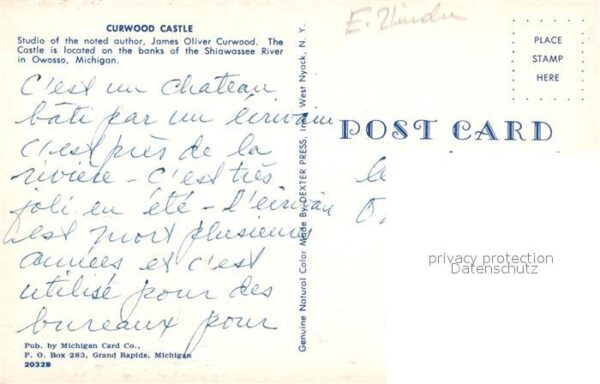 CURWOOD CASTLE
Studio of the noted author, James Oliver Curwood. The
Castle is located on the banks of the Shiawassee River
in Owosso, Michigan.
C'est un chateau
bâti par un écrivain
C'est près de la
rivière - C'est très
joli en été - L'écrivain
est mort plusieurs
années et c'est
utilisé pour des
bureaux pour
Pub. by Michigan Card Co.,
P. O. Box 283, Grand Rapids, Michigan
20328
Genuine Natural Color Made By DEXTER PRESS, Inc. West Nyack, N. Y.
E.
PLACE
STAMP
HERE
POST CARD
le
privacy protection
Datenschutz